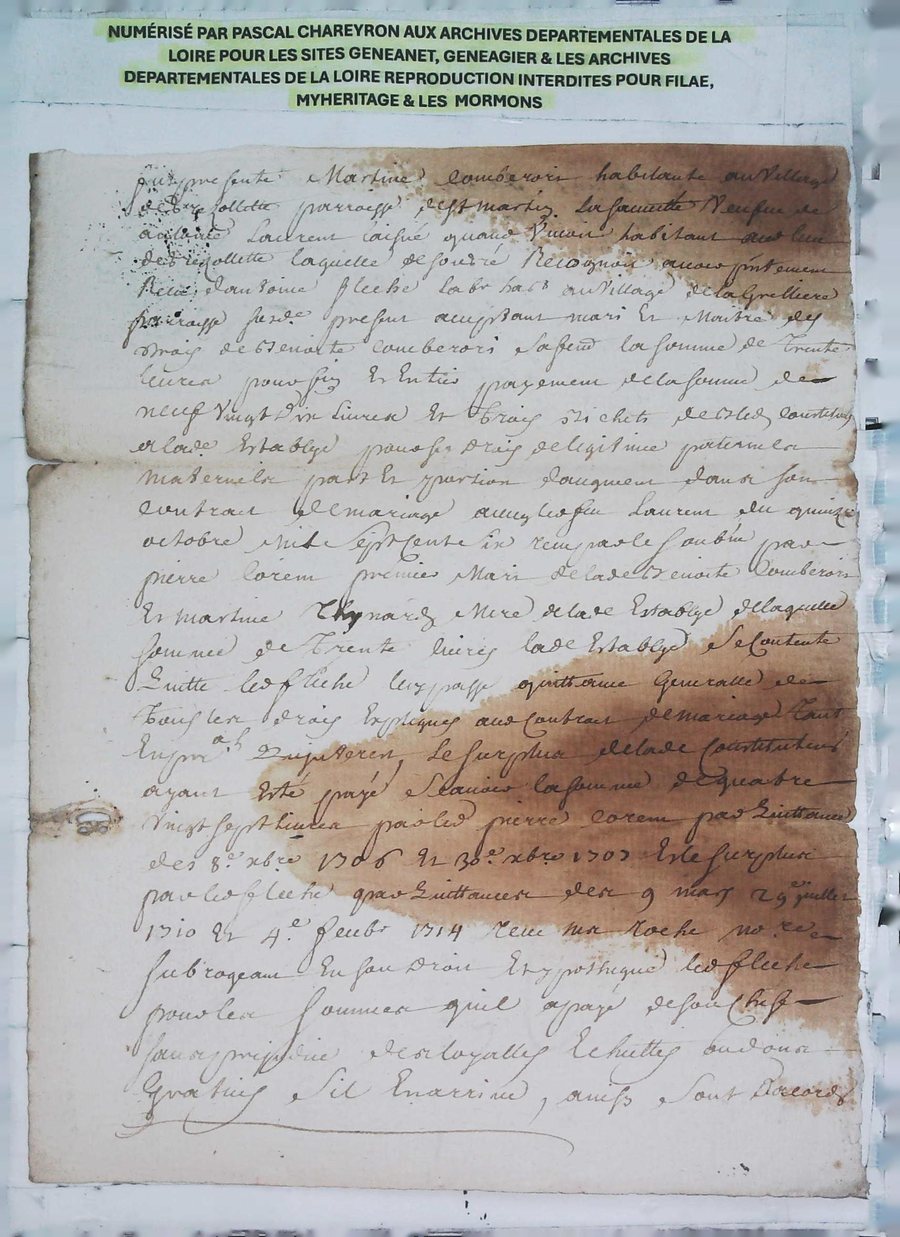 NUMÉRISÉ PAR PASCAL CHAREYRON AUX ARCHIVES DEPARTEMENTALES DE LA
LOIRE POUR LES SITES GENEANET, GENEAGIER & LES ARCHIVES
DEPARTEMENTALES DE LA LOIRE REPRODUCTION INTERDITES POUR FILAE,
MYHERITAGE & LES MORMONS
fut presente Martine Comberori habitante au Village
parroisse de St martin la sauveté Veufue de
Laurent laisné quand viuoit habitant aud lieu
laquelle de son gré Recognoit auoir pntement
Receu dantoine fleche lab hab au Village de la Grelliere
parroisse susde present acceptant mari Et Maitre des
drois de Benoite Comberori sa feme la somme de Trente
liures pour fin Et Entier payement de la somme de
neuf Vingt Dix Liures Et Trois Bichets de Bled constitues
a lade Establye pour ses drois de legitime paternels
maternels part Et portion daugment dans son
contrat de mariage auec led feu Laurent du quinze
octobre Mil Sept Cent Six par
pierre Corem premier Mari de lade Benoite Comberori
Et martine Mere de lade Establye de laquelle
somme de Trente liures lade Establye se Contente
quitte led fleche luy passe quittance Generalle de
Tous les drois Expliques aud Contrat de mariage Tant
En pnal quinterest, le surplus de lade Constitution
ayant Esté payé scauoir la somme de quatre
vingt sept liures par led pierre Corem par Quittance
des 8e xbre 1706 Et 30e xbre 1707 Et le surplus
par led fleche par quittances des 9 mars 29e juillet
1710 Et 4e feubr 1714 Receu me Roche nore
subrogeant En son droit Et ypotheque led fleche
pour les sommes quil a payé de son Chef
sans prejudice des loyalles Echuttes ou dons
Gratuis sil En arriue, ainsy sont dacord